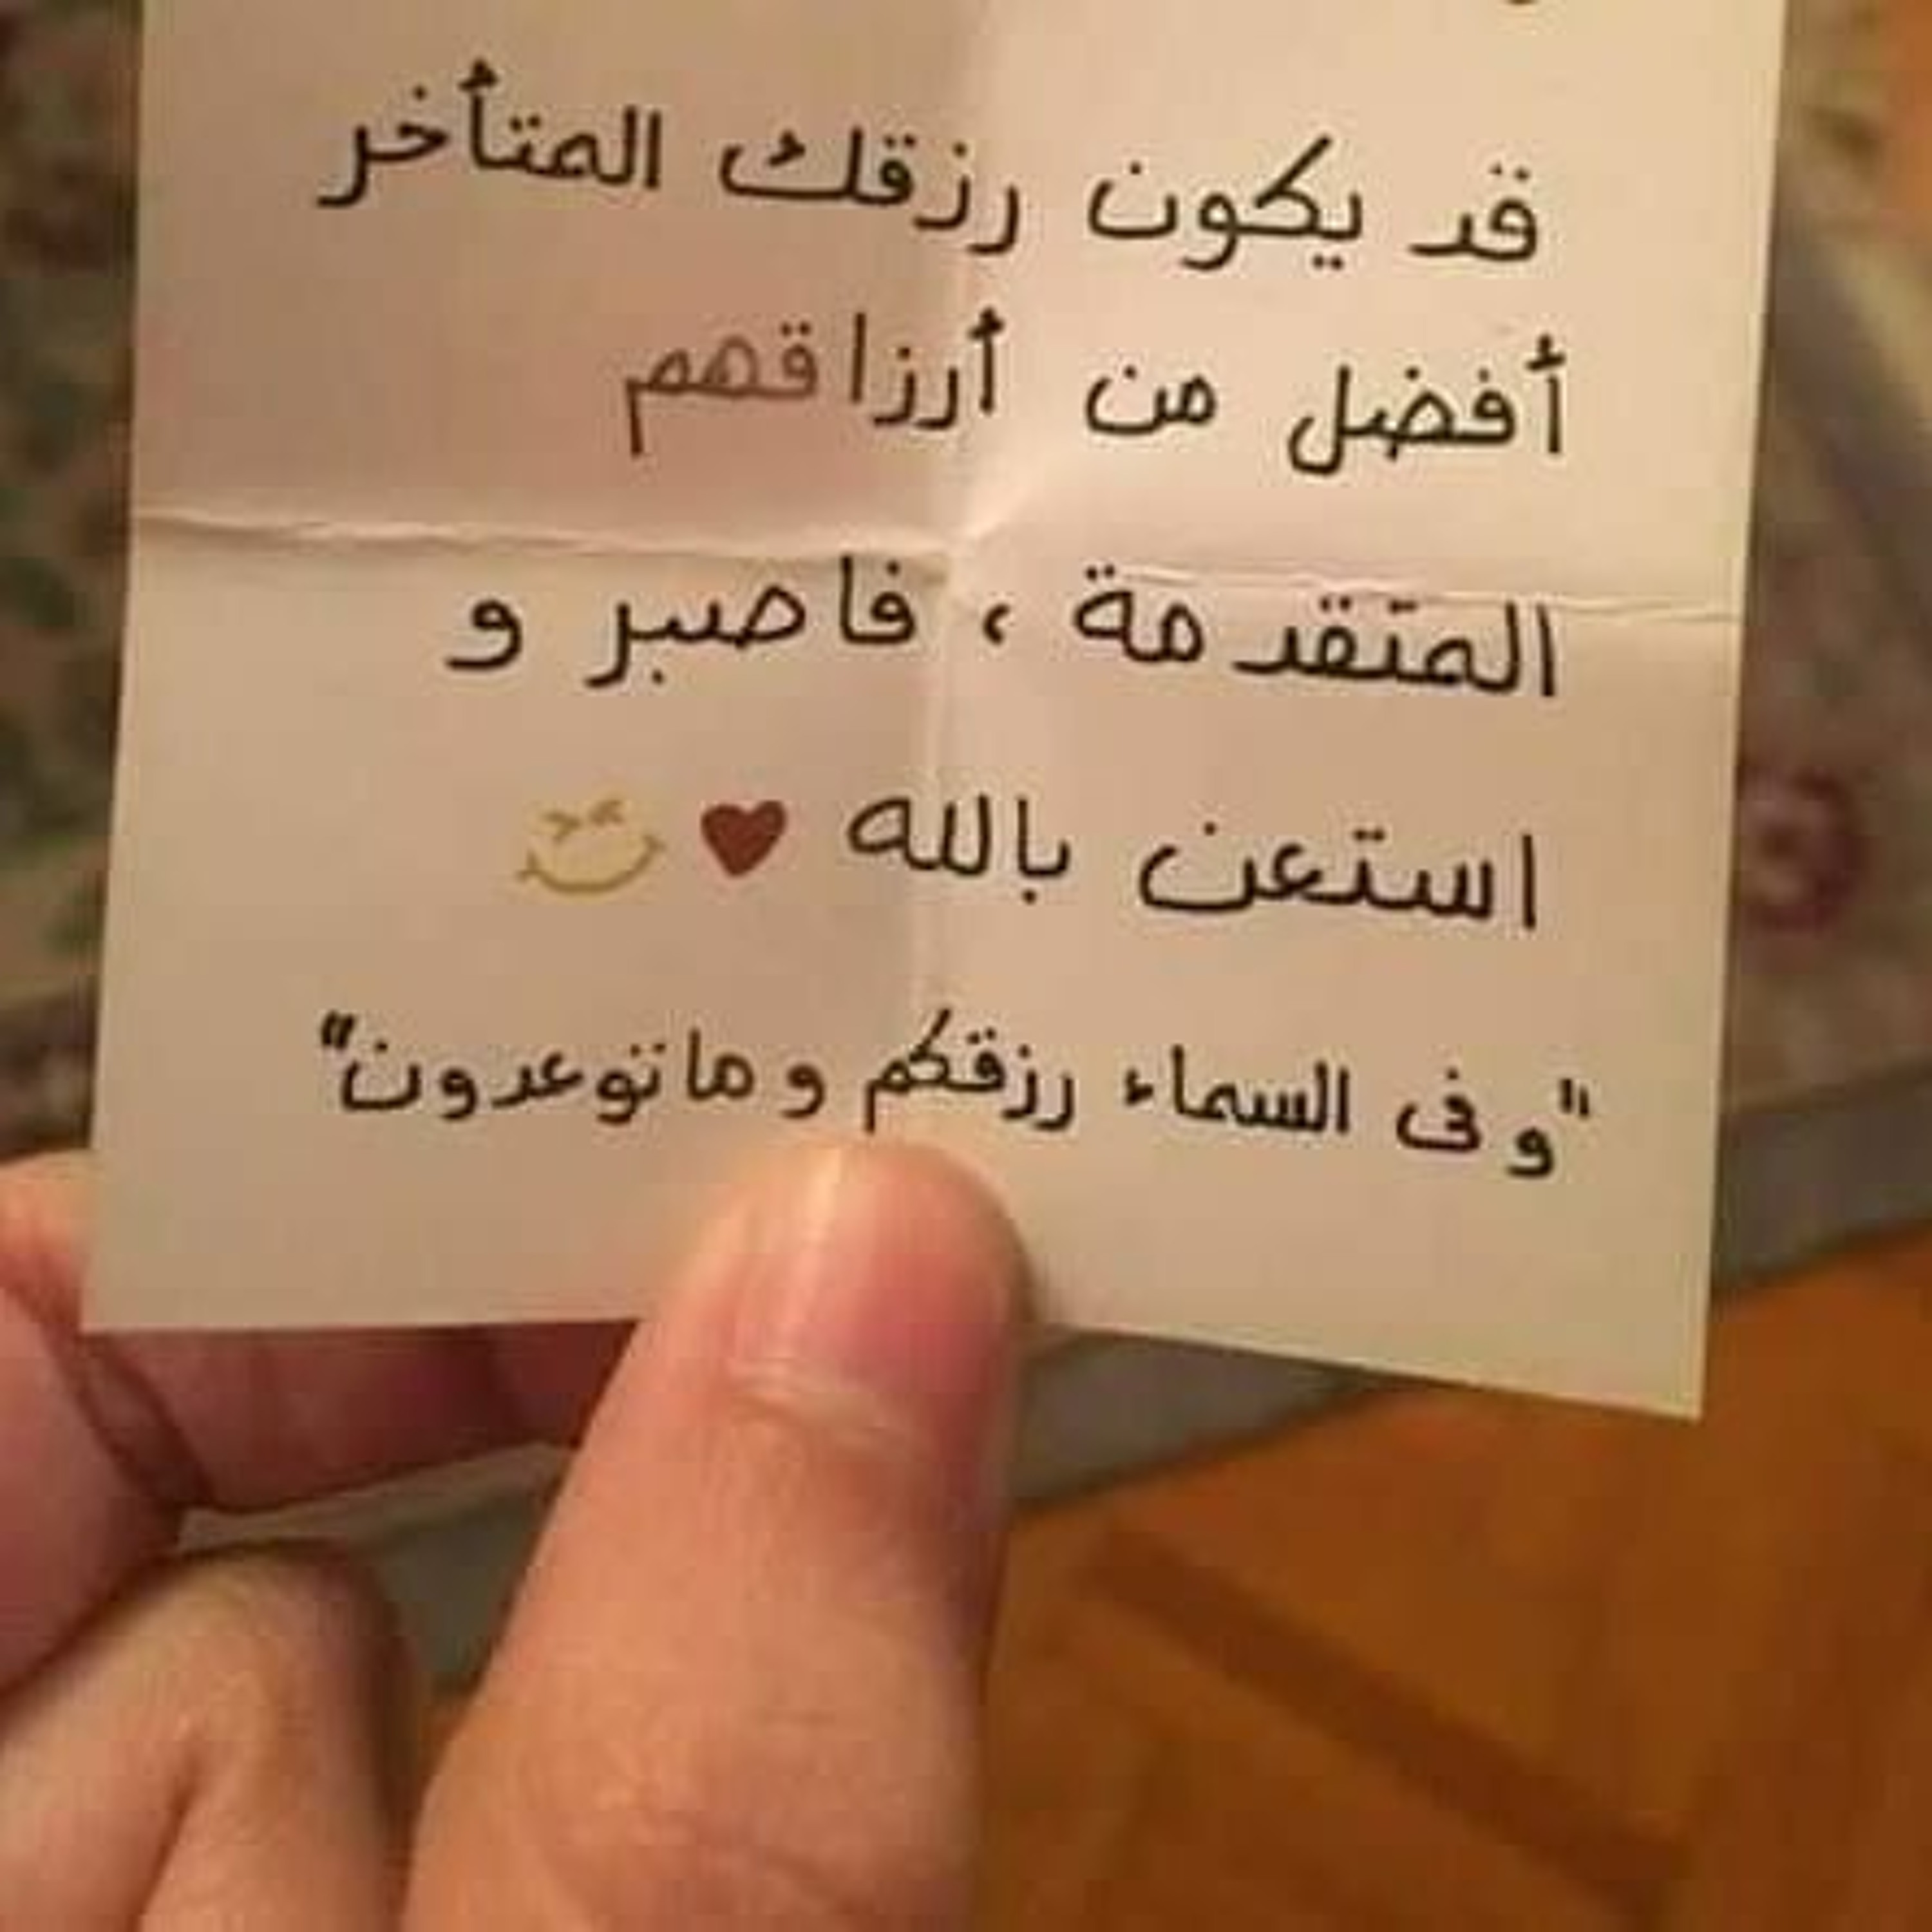 قد يكون رزقك المتأخر
أفضل من أرزاقهم
المتقدمة ، فاصبر و
استعن بالله ♥
"و فى السماء رزقكم و ما توعدون"